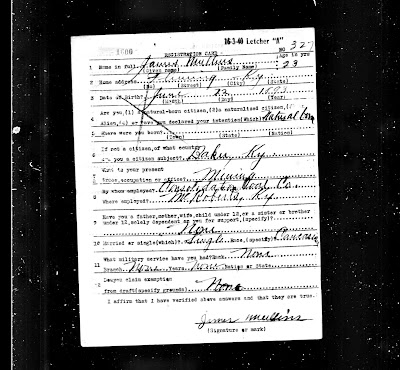 16-3-40 Letcher "A"
REGISTRATION CARD No 327
1 Name in full James Mullins Age in yrs 23
(Given name) (Family Name)
2 Home address Fleming Ky
(No) (Street) (City) (State)
3 Date of Birth? June 22 1893
(Month) (Day) (Year)
4 Are you, (1) a natural born citizen, (2) a naturalized citizen, (3
Alien, (4) or have you declared your intention(which)? Natural born
5 Where were you born?
(Town) (State) (Nation)
6 If not a citizen, of what country
are you a citizen subject? Baker, Ky.
7 What is your present
trade, occupation or office? Mining
8 By whom employed? Consolidation Coal Co.
Where employed? McRoberts, Ky.
9 Have you a father, mother, wife, child under 12, or a sister or brother
under 12, solely dependent on you for support, (specify)?
None
10 Married or single(which)? Single Race, (specify) Caucasian
11 What military service have you had? Rank, None
Branch, None Years, None Nation or State
12 Do you claim exemption
from draft(specify grounds) None
I affirm that I have verified above answers and that they are true.
James Mullins
(Signature or mark)